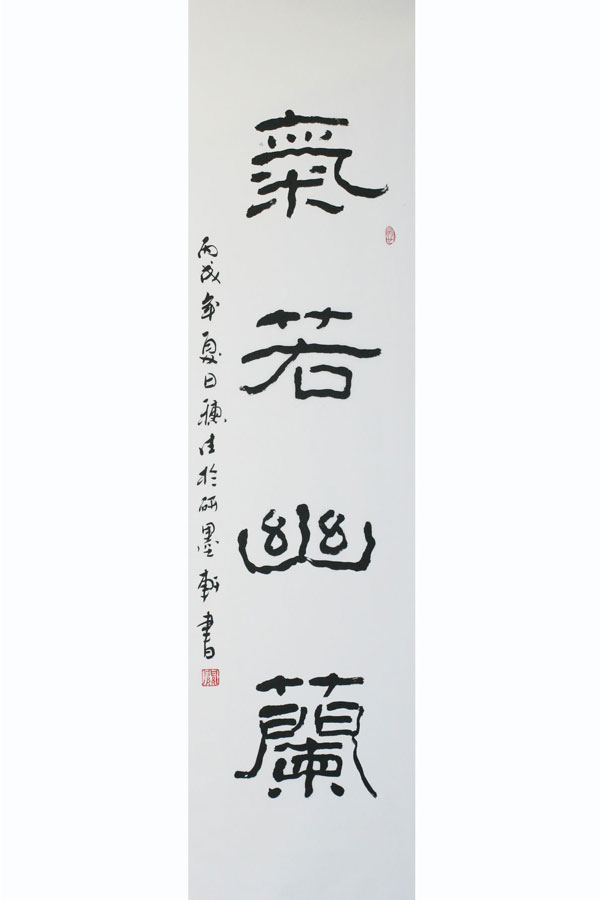 氣若幽蘭
丙戌年夏日穗佳於研墨軒書